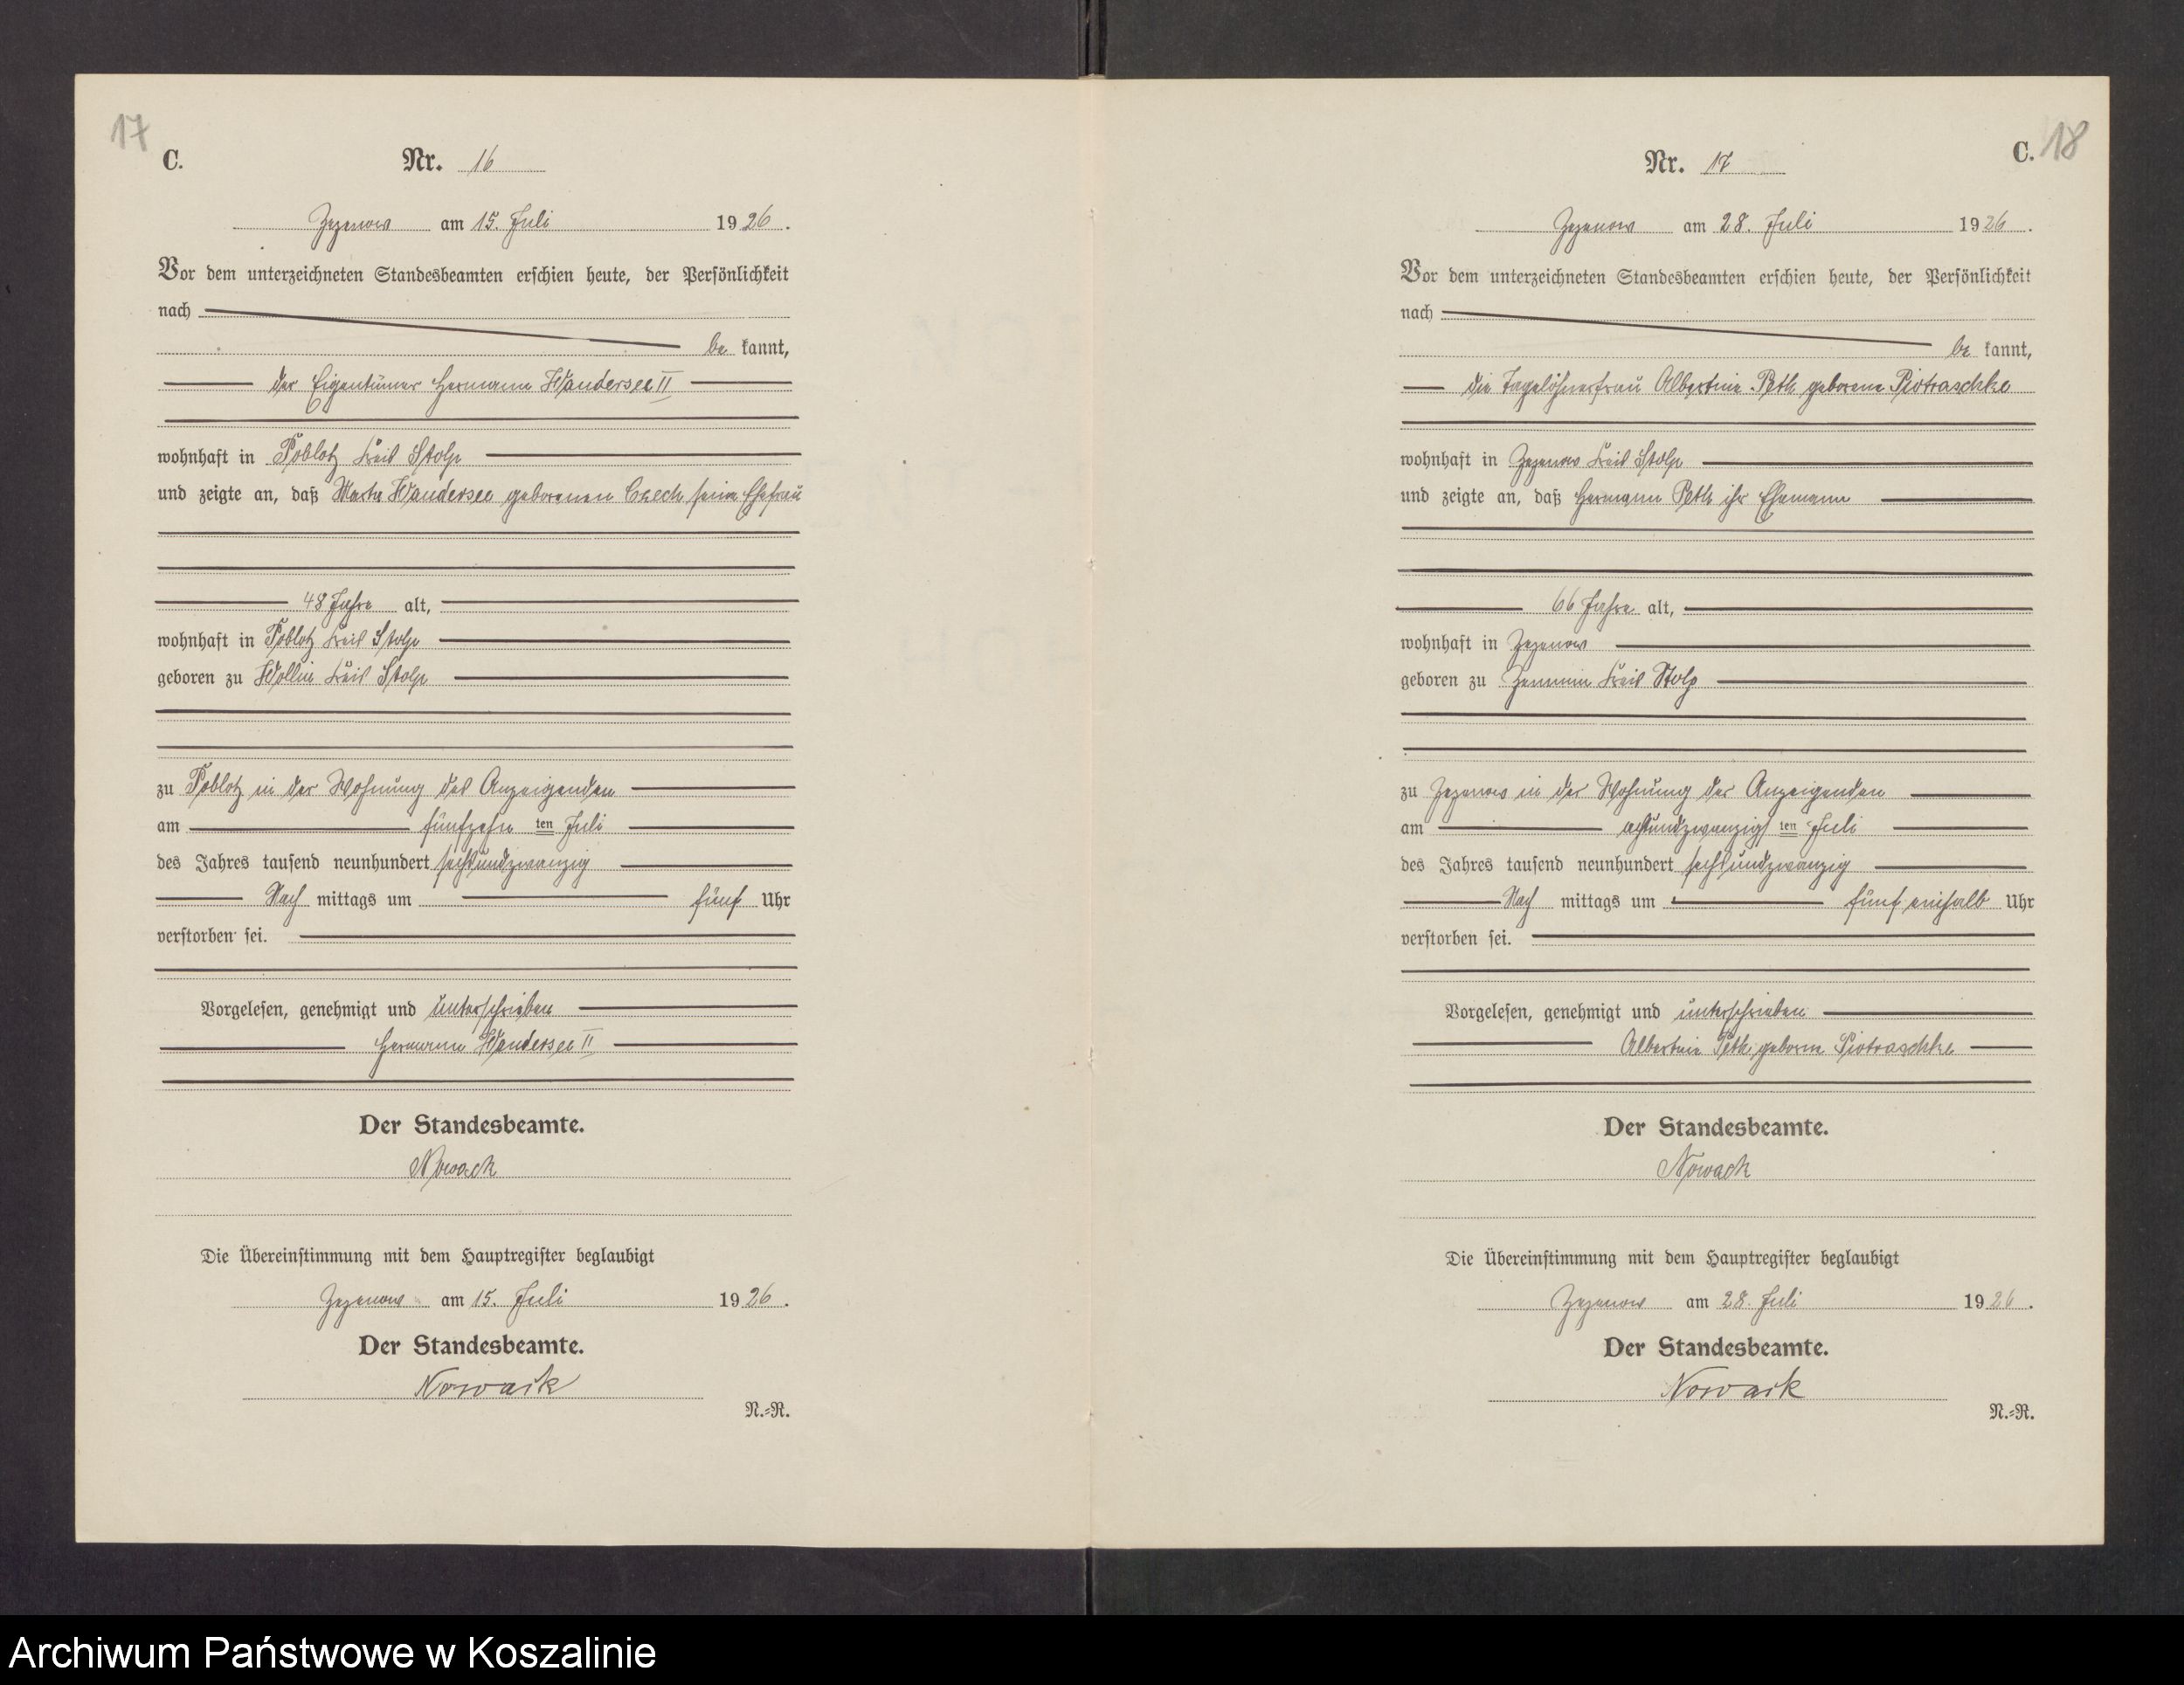 17
C.
Nr. 16
Zezenow am 15. Juli 1926.
Vor dem unterzeichneten Standesbeamten erschien heute, der Persönlichkeit
nach
be kannt,
der Eigentümer Hermann Wandersee II
wohnhaft in Poblotz Kreis Stolp
und zeigte an, daß Marta Wandersee geborenen Czech seine Ehefrau
48 Jahre alt,
wohnhaft in Poblotz Kreis Stolp
geboren zu Wollin Kreis Stolp
zu Poblotz in der Wohnung des Anzeigenden
am fünfzehn ten Juli
des Jahres tausend neunhundert sechsundzwanzig
Nach mittags um fünf Uhr
verstorben sei.
Vorgelesen, genehmigt und unterschrieben
Hermann Wandersee II
Der Standesbeamte.
Nowack
Die Übereinstimmung mit dem Hauptregister beglaubigt
Zezenow am 15. Juli 1926.
Der Standesbeamte.
Nowack
N.=R.
C. 18
Nr. 17
Zezenow am 28. Juli 1926.
Vor dem unterzeichneten Standesbeamten erschien heute, der Persönlichkeit
nach
be kannt,
die Tagelöhnerfrau Albertine Peth geborene Piotraschke
wohnhaft in Zezenow Kreis Stolp
und zeigte an, daß Hermann Peth ihr Ehemann
66 Jahre alt,
wohnhaft in Zezenow
geboren zu Zemmin Kreis Stolp
zu Zezenow in der Wohnung der Anzeigenden
am achtundzwanzigsten Juli
des Jahres tausend neunhundert sechsundzwanzig
Nach mittags um fünf einhalb Uhr
verstorben sei.
Vorgelesen, genehmigt und unterschrieben
Albertine Peth geborne Piotraschke
Der Standesbeamte.
Nowack
Die Übereinstimmung mit dem Hauptregister beglaubigt
Zezenow am 28. Juli 1926.
Der Standesbeamte.
Nowack
N.=R.
Archiwum Państwowe w Koszalinie